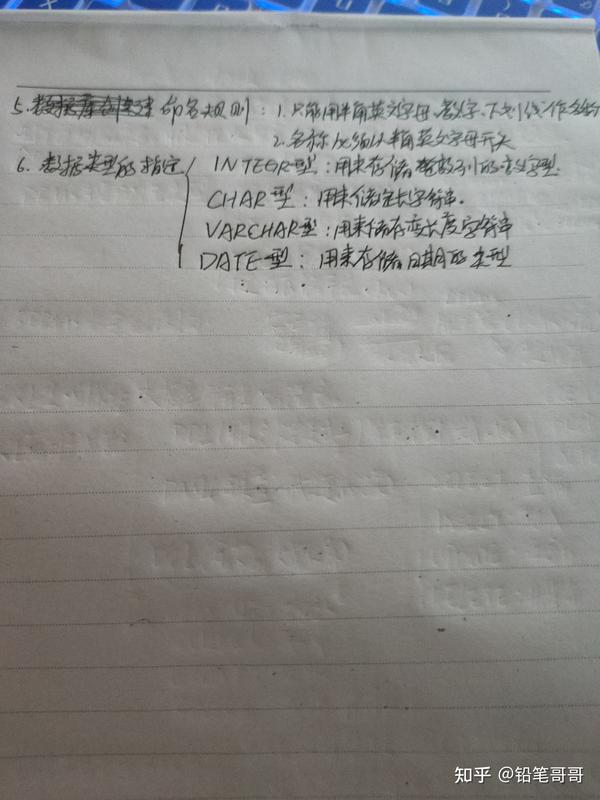 5. 数据库创建 命名规则：1. 只能用半角英文字母、数字、下划线作名称
2. 名称必须以半角英文字母开头
6. 数据类型的指定 INTEGR型：用来存储整数列的数字型.
CHAR型：用来储定长字符串.
VARCHAR型：用来储存变长度字符串
DATE型：用来存储日期的类型
知乎 @铅笔哥哥